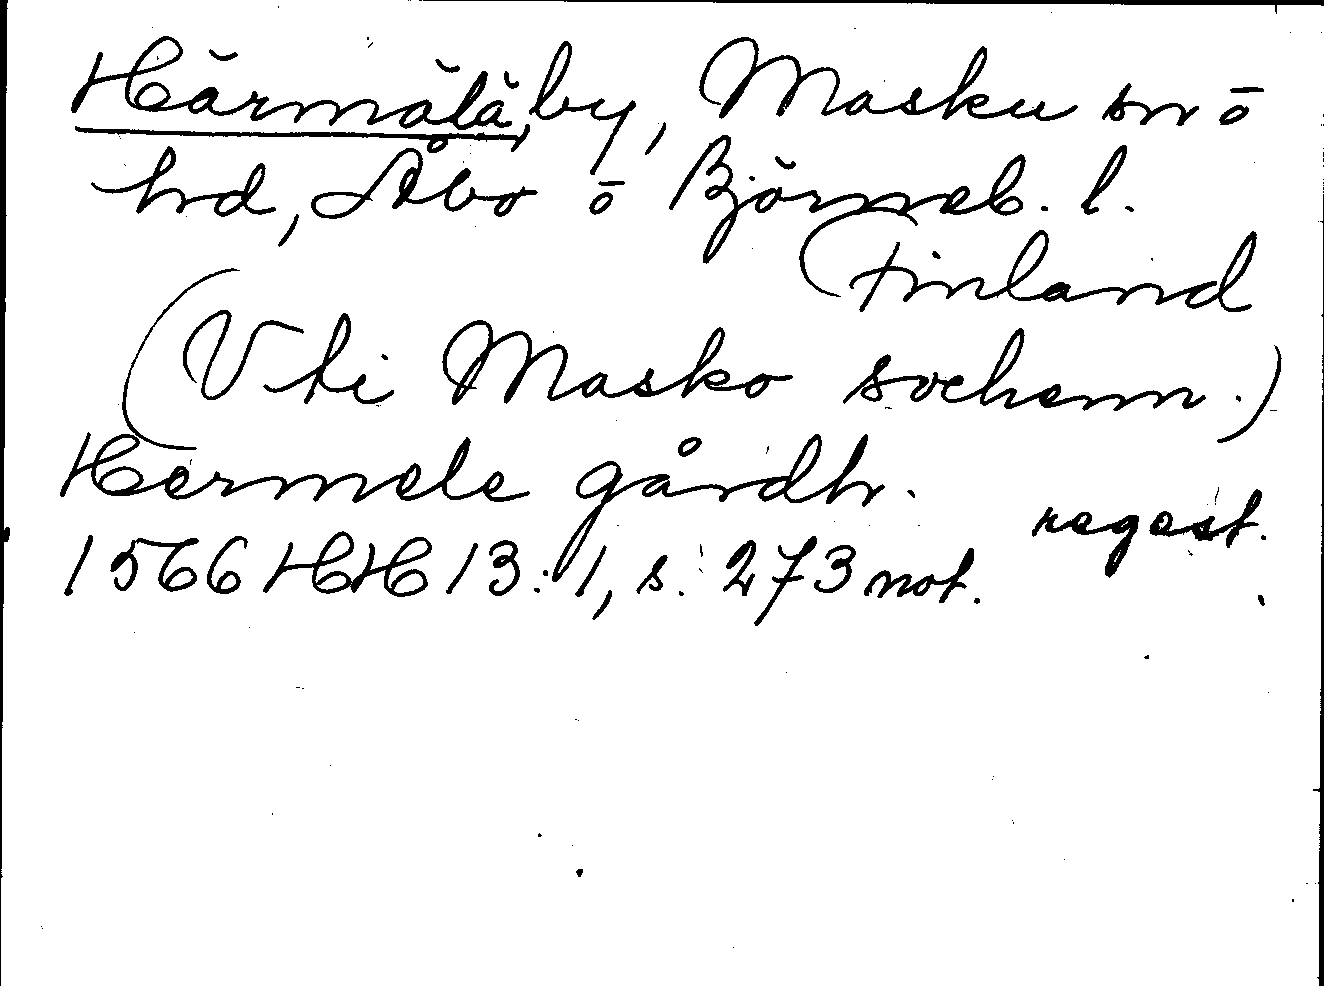 Härmälä, by, Masku sn o
hd, Åbo o Björneb. l.
(Finland
(Vti Masko sochenn.)
Hermele gårdh.
regest.
1566 HH 13:1, s. 273 not.